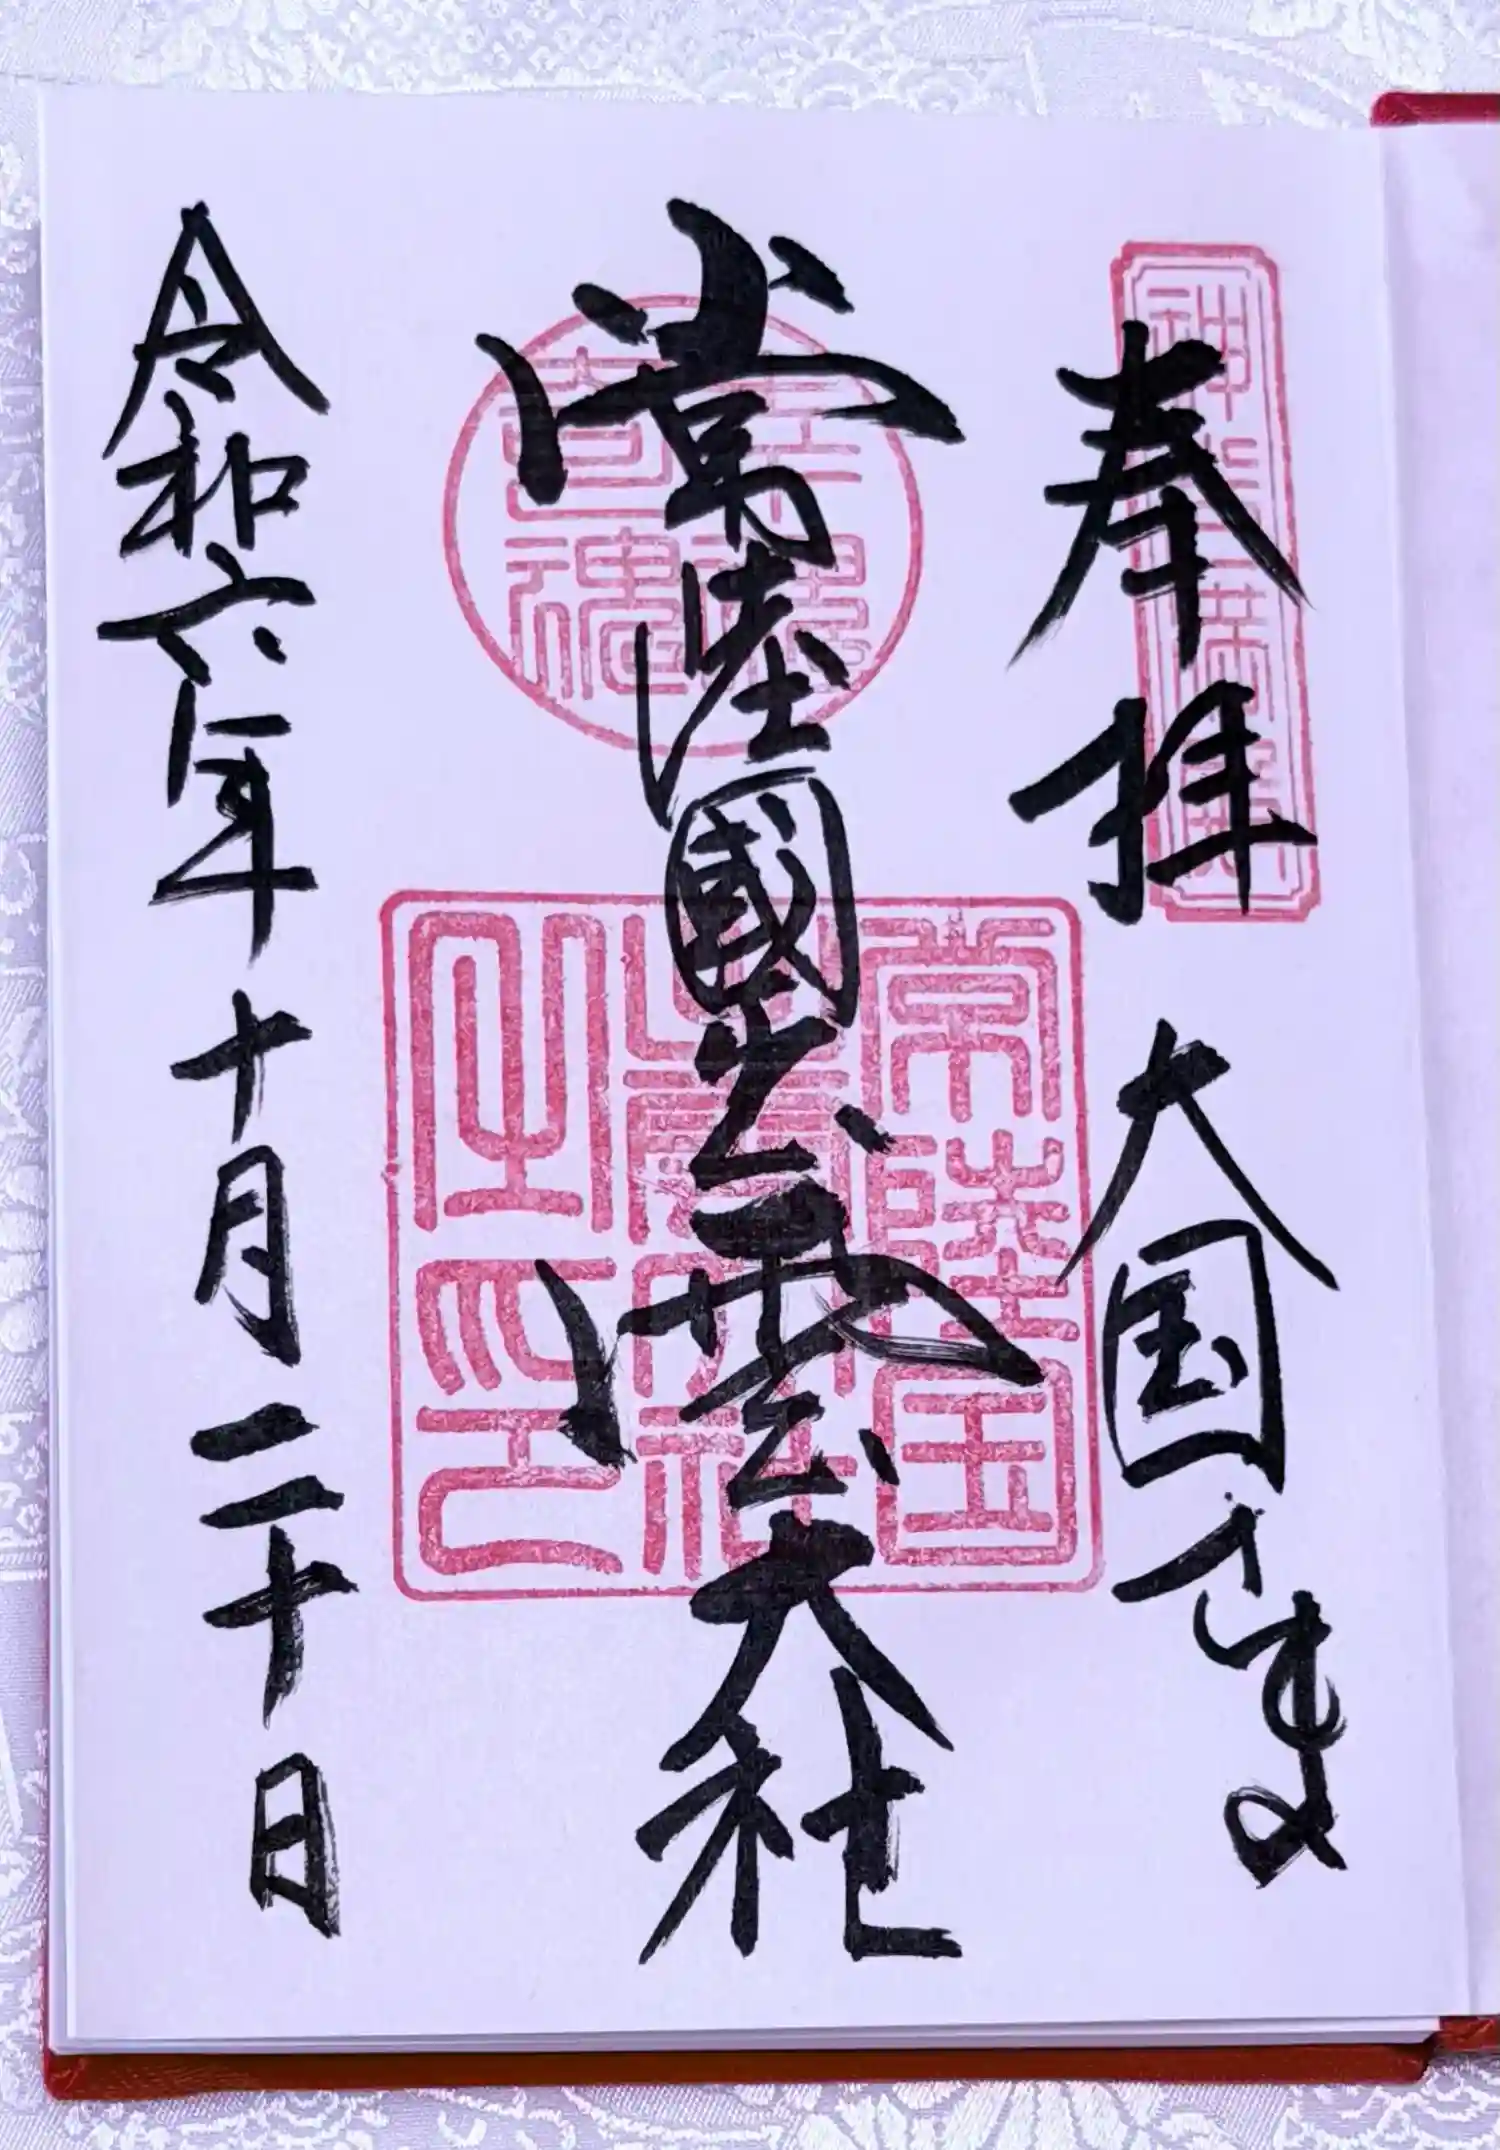 奉拝 大国さま
常陸國出雲大社
令和六年十月二十日
常陸国
出雲大社
之印
幸魂
奇魂